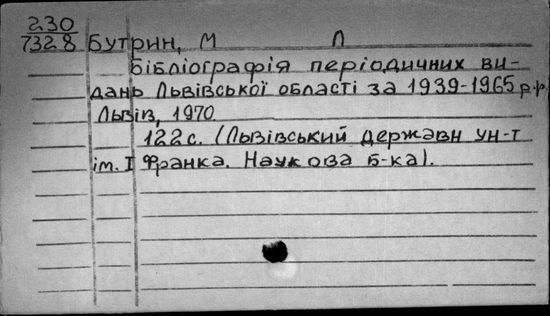 230
7328 Бутрин, М Л
Бібліографія періодичних ви-
дань Львівської області за 1939-1965 р.р.
Львів, 1970
122 с. (Львівський державн ун-т
ім. І Франка. Наукова б-ка).